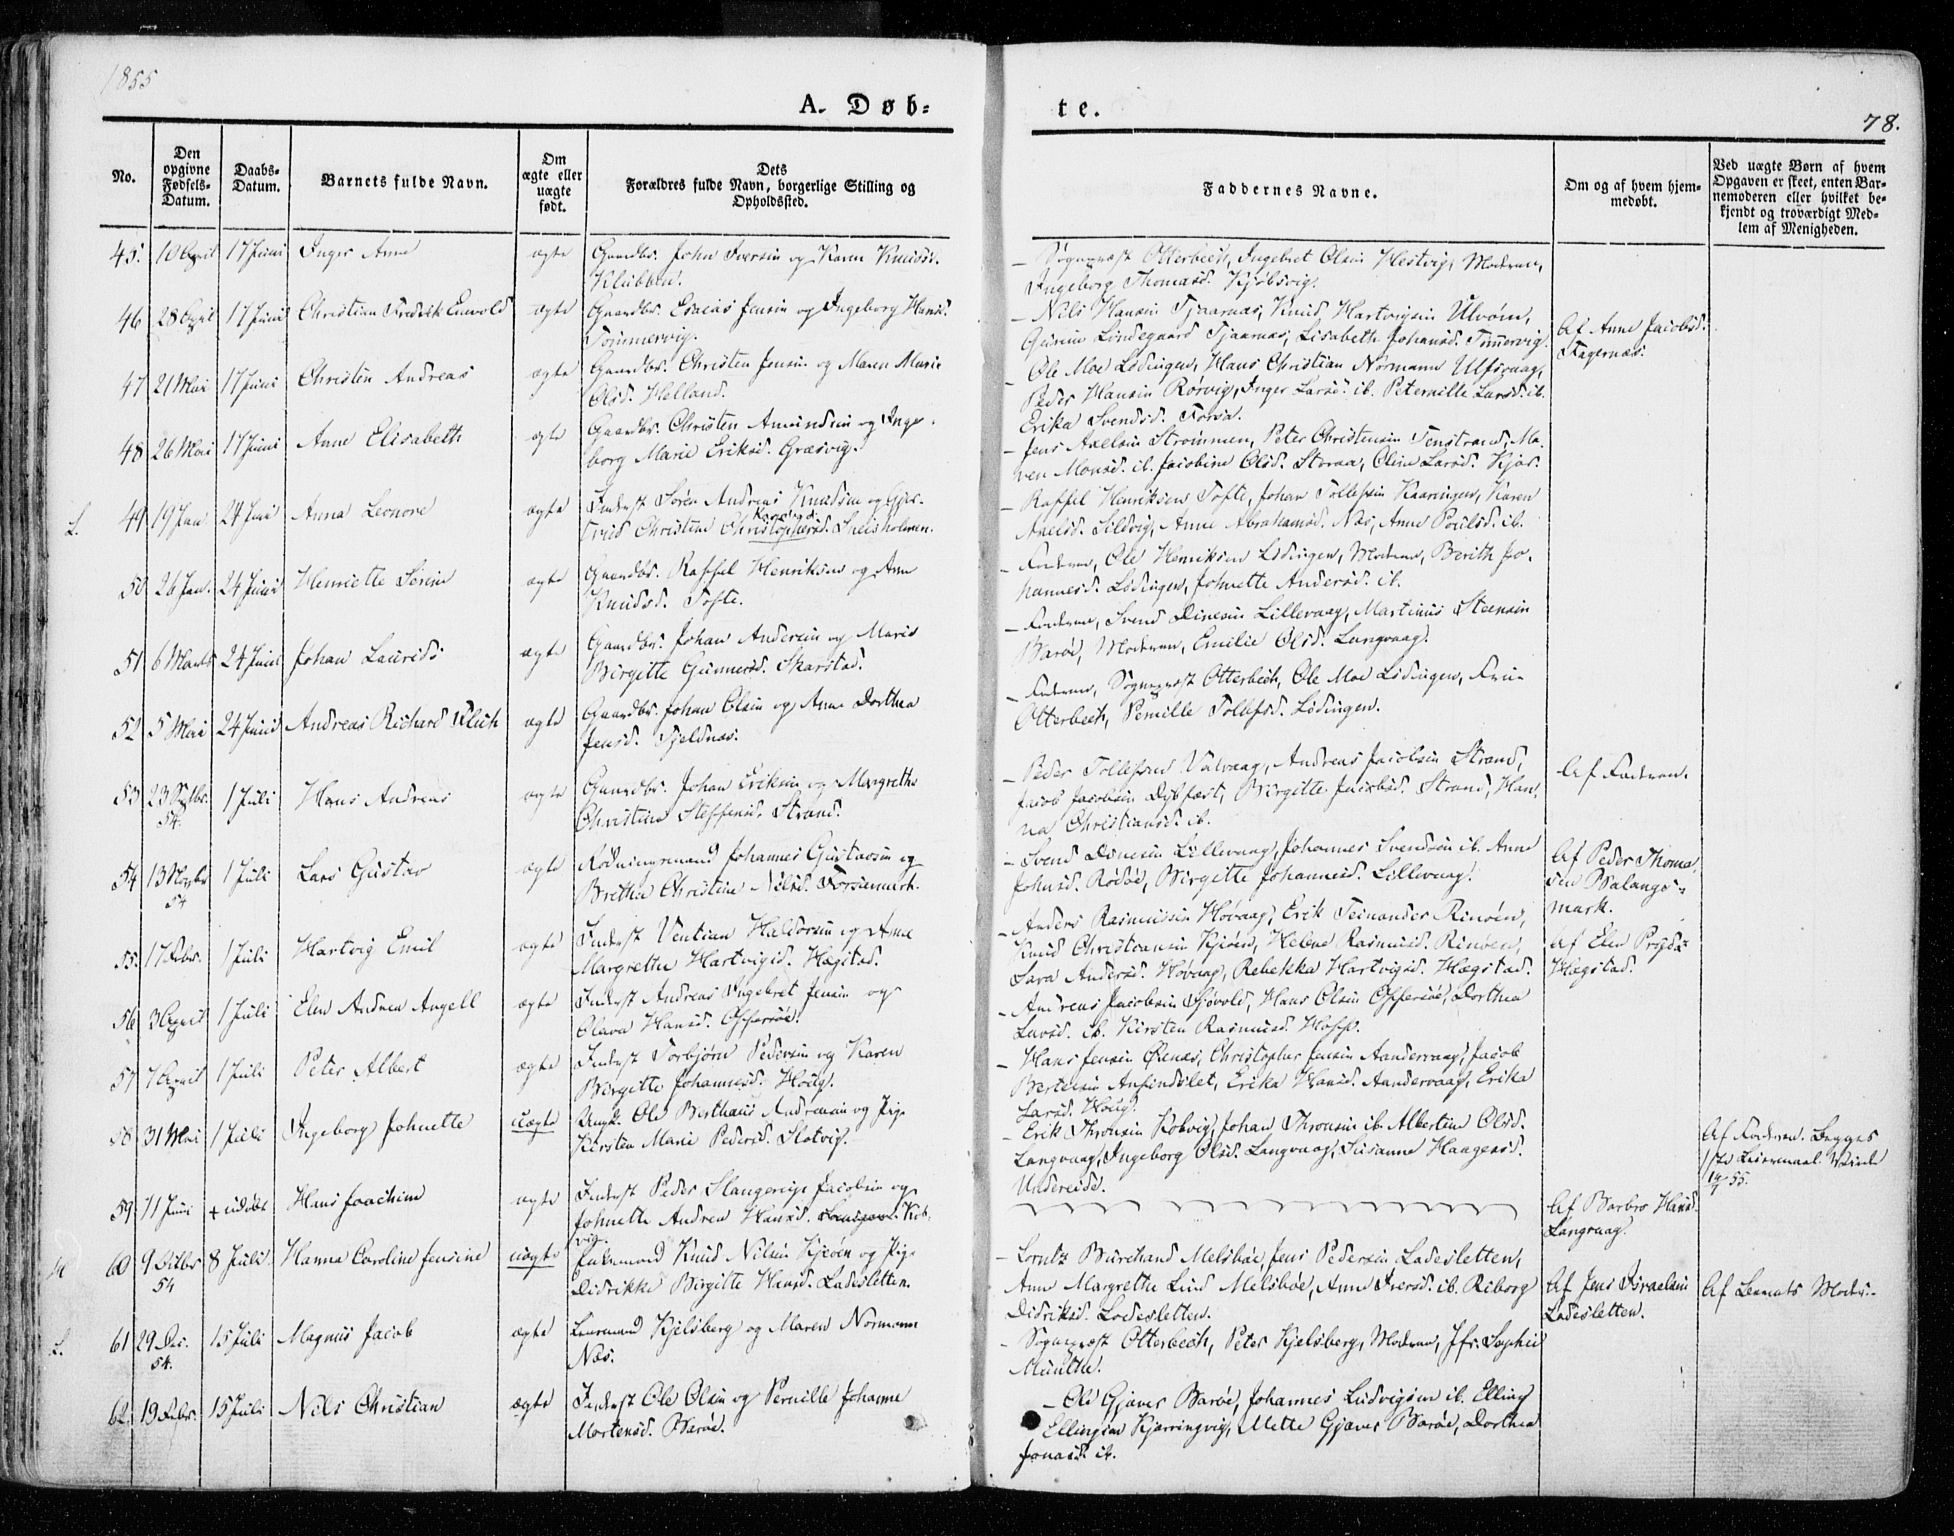 1855
A. Døb= te. 78.
No.
Den opgivne Fødsels-Datum.
Daabs-Datum.
Barnets fulde Navn.
Om ægte eller uægte født.
Dets Forældres fulde Navn, borgerlige Stilling og Opholdssted.
Faddernes Navne.
Om og af hvem hjemmedøbt.
Ved uægte Børn af hvem Opgaven er skeet, enten Barnemoderen eller hvilket bekjendt og troværdigt Medlem af Menigheden.
45. 10 April 17 Juni Inger Anne ægte Gaardbr. John Iversen og Karen Knudsd. – Sogneprest Otterbech, Ingebret Olsen Hestvig, Moderen,
Klubben. Ingeborg Thomasd. Kjøbsvig.
46 28 April 17 Juni Christian Fredrik Enevold ægte Gaardbr. Esaias Jensen og Ingeborg Hansd. – Nils Hansen Tjaarnæs, Knud Hartvigsen Ulvøen,
Tømmervig. Lindegaard Tjaarnæs, Lisabeth Johansd. Tømmervig Af Anne Jacobsd. Fagernæs.
47 21 Mai 17 Juni Christen Andreas ægte Gaardbr. Christen Jensen og Maren Marie – Ole Moe Lødingen, Hans Christian Normann Ulfsvaag,
Olsd. Helland. Peder Hansen Rørvig, Inger Larsd. ib. Peternille Larsd. ib.
Erika Svendsd. Forsa.
48 26 Mai 17 Juni Anne Elisabeth ægte Gaardbr. Christen Amundsen og Inge- – Jens Axelsen Strømmen, Peter Christensen Tenstrand, Ma-
borg Marie Eriksd. Græsvig. ren Monsd. ib. Jacobine Olsd. Storaa, Oline Larsd. Kjær.
L. 49 19 Jan 24 Juni Anna Leonore ægte Inderst Søren Andreas Knudsen og – Raffel Henriksen Tofte, Johan Tollefsen Kaaringen, Karen
Christine Christophersd. Axelsd. Sildvig, Anne Abrahamsd. Næs, Anne Poulsd. ib.
50 26 Jan. 24 Juni Henriette Sørine ægte Gaardbr. Raffel Henriksen og Ane – Faderen, Ole Henriksen Lødingen, Moderen, Berith Jo-
Knudsd. Tofte. hannesd. Lødingen, Johnette Andersd. ib.
51 6 Marts 24 Juni Johan Laurids ægte Gaardbr. Johan Andersen og Maria – Faderen, Svend Dinesen Lillevaag, Martinus Steensen
Birgitte Gunnersd. Skarstad. Barøe, Moderen, Emilie Olsd. Langvaag.
52 5 Mai 24 Juni Andreas Richard ægte Gaardbr. Johan Olsen og Ane Dorthea – Faderen, Sogneprest Otterbech, Ole Moe Lødingen, Fru
Jensd. Fjeldnæs. Otterbech, Pernille Tollefsd. Lødingen.
53 23 54. 1 Juli Hans Andreas ægte Gaardbr. Johan Eriksen og Margrethe – Peder Tollefsen Valvaag, Andreas Jacobsen Strand, Af Faderen.
Christine Steffensd. Strand. Jacob Jacobsen Dybfæst, Birgitte Jacobsd. Strand, Han-
na Christiansd. ib.
54 13 Novbr 54 1 Juli Lars Gustav ægte Rødningsmand Johannes Gustavsen og – Svend Dinesen Lillevaag, Johannes Svendsen ib. Anne Af Peder Thoma-
Brethe Christine Nilsd. Johnsd. Rødøe, Birgitte Johannesd. Lillevaag. sen Balangsmark.
55. 17 Febr. 1 Juli Hartvig Emil ægte Inderst Ventian Haldorsen og Anne – Anders Rasmussen Høvaag, Erik Feinander Rinøen,
Margrethe Hartvigsd. Hægstad. Knud Christiansen Kjiøen, Helene Rasmusd. Rinøen, Af Elen
Sara Andersd. Høvaag, Rebekka Hartvigsd. Hægstad. Hægstad.
56 3 April 1 Juli Elen Andrea Angell ægte Inderst Andreas Ingebret Jensen og – Andreas Jacobsen Sjøvold, Hans Olsen Offersøe, Dorthea
Olava Hansd. Offersøe. Larsd. ib. Kirsten Rasmusd. Hopp.
57 7 April 1 Juli Peter Albert ægte Inderst Torbjørn Pedersen og Karen – Hans Jensen Øknæs, Christopher Jensen Aandervaag, Jacob
Birgitte Johannesd. Houg. Bertesen Anfindslet, Erika Hansd. Aandervaag, Erika
Larsd. Houg.
58 31 Mai 1 Juli Ingeborg Johnette uægte Ungk. Ole Berthæus Andreasen og Pige – Erik Thronsen Kobvig, Johan Thronsen ib. Albertine Olsd. Af Faderen. Begges
Kirsten Marie Pedersd. Slotvig. Langvaag, Ingeborg Olsd. Langvaag, Susanne Haagensd. 1ste Leiermaal. Viede
Undereide. 14/7 55.
59 11 Juni + udøbt Hans Joachim ægte Inderst Peder Slangerup Jacobsen og Af Barbro Hansd.
Johnette Andrea Hansd. Kob- Langvaag.
vig.
60 9 54 8 Juli Hanna Caroline Jensine uægte Enkemand Knud Nilsen Kjiøen og Pige – Lorntz Burchard Melsbøe, Jens Pedersen Ladesletten,
Didrikke Birgitte Hansd. Ladesletten. Anne Margrethe Lind Melsbøe, Anne Iversd. ib. Riborg Af Jens Israelsen Af Barnets Moder.
Didriksd. Ladesletten. Ladesletten.
L. 61 29 Dec. 54. 15 Juli Magnus Jacob ægte Kjelsberg og Maren Normann – Sogneprest Otterbech, Peter Kjelsberg, Moderen, Jfr. Sophie
Næs. Munthe.
62. 19 Febr. 15 Juli Nils Christian ægte Inderst Ole Olsen og Pernille Johanne – Ole Gjæver Barøe, Johannes Ludvigsen ib. Elling
Mortensd. Barøe. Ellingsen Kjærringvig, Mette Gjæver Barøe, Dorthea
Jonasd. ib.